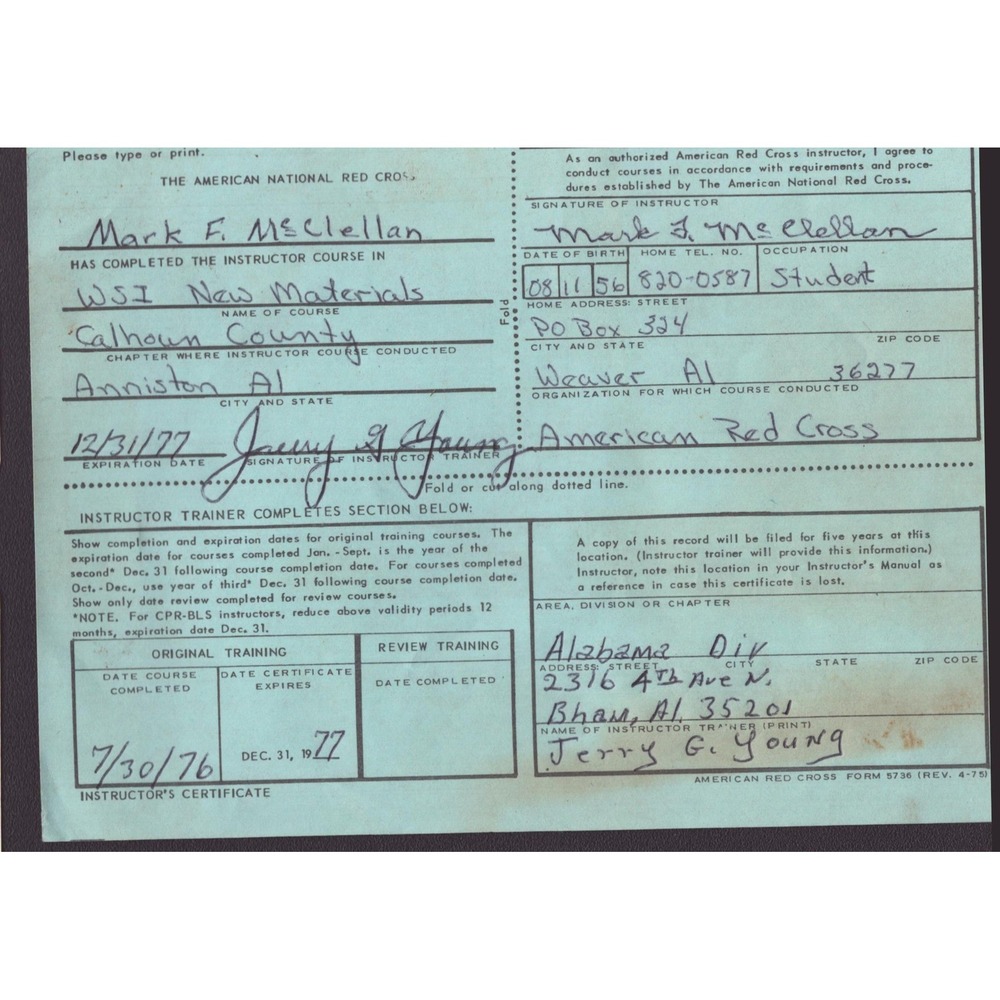 Please type or print.
THE AMERICAN NATIONAL RED CROSS
Mark F. McClellan
HAS COMPLETED THE INSTRUCTOR COURSE IN
WSI New Materials
NAME OF COURSE
Calhoun County
CHAPTER WHERE INSTRUCTOR COURSE CONDUCTED
Anniston Al
CITY AND STATE
12/31/77 Jerry G Young
EXPIRATION DATE SIGNATURE OF INSTRUCTOR TRAINER
Fold
As an authorized American Red Cross instructor, I agree to
conduct courses in accordance with requirements and proce-
dures established by The American National Red Cross.
SIGNATURE OF INSTRUCTOR
Mark F. McClellan
DATE OF BIRTH HOME TEL. NO. OCCUPATION
08 11 56 820-0587 Student
HOME ADDRESS: STREET
PO Box 324
CITY AND STATE ZIP CODE
Weaver Al 36277
ORGANIZATION FOR WHICH COURSE CONDUCTED
American Red Cross
Fold or cut along dotted line.
INSTRUCTOR TRAINER COMPLETES SECTION BELOW:
Show completion and expiration dates for original training courses. The
expiration date for courses completed Jan. - Sept. is the year of the
second* Dec. 31 following course completion date. For courses completed
Oct. - Dec., use year of third* Dec. 31 following course completion date.
Show only date review completed for review courses.
*NOTE. For CPR-BLS instructors, reduce above validity periods 12
months, expiration date Dec. 31.
ORIGINAL TRAINING REVIEW TRAINING
DATE COURSE COMPLETED DATE CERTIFICATE EXPIRES DATE COMPLETED
7/30/76 DEC. 31, 1977
INSTRUCTOR'S CERTIFICATE
A copy of this record will be filed for five years at this
location. (Instructor trainer will provide this information.)
Instructor, note this location in your Instructor's Manual as
a reference in case this certificate is lost.
AREA, DIVISION OR CHAPTER
Alabama Div
ADDRESS: STREET CITY STATE ZIP CODE
2316 4th Ave N.
Bham, Al. 35201
NAME OF INSTRUCTOR TRAINER (PRINT)
Jerry G. Young
AMERICAN RED CROSS FORM 5736 (REV. 4-75)